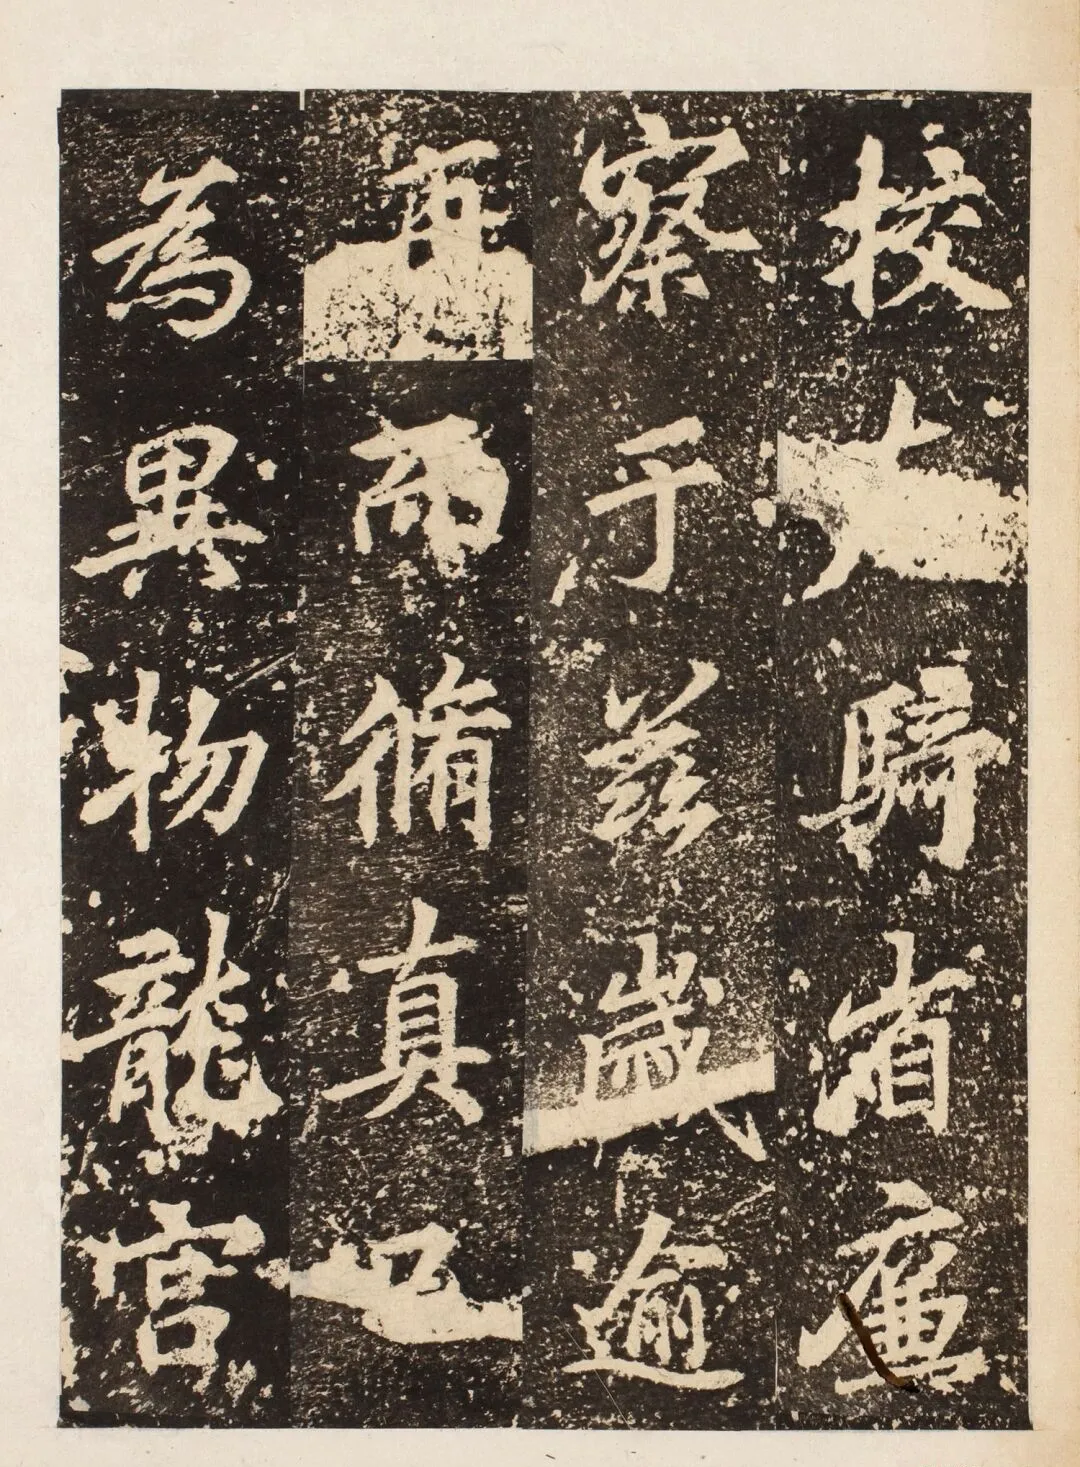 校大騎省廉
察于茲歲逾
再而脩真也
為異物龍宮